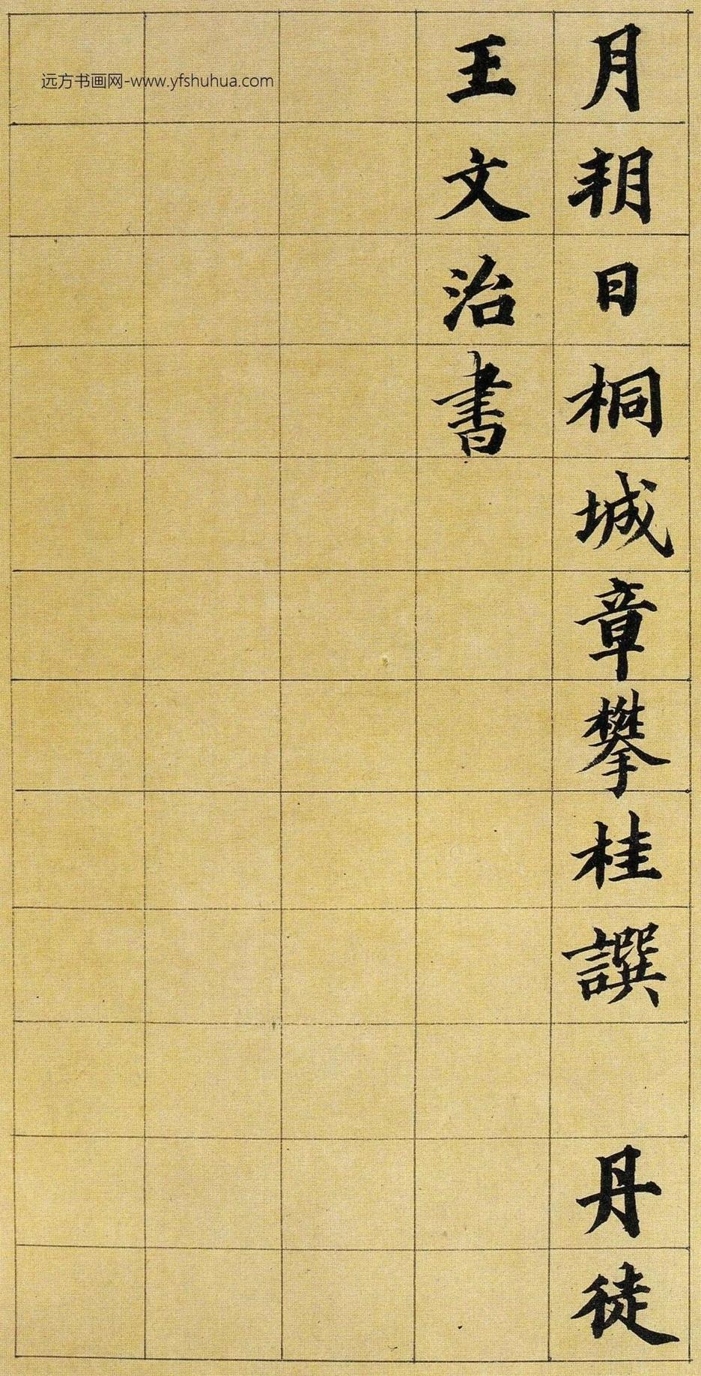 月朔日桐城章攀桂譔　丹徒
王文治書
远方书画网-www.yfshuhua.com